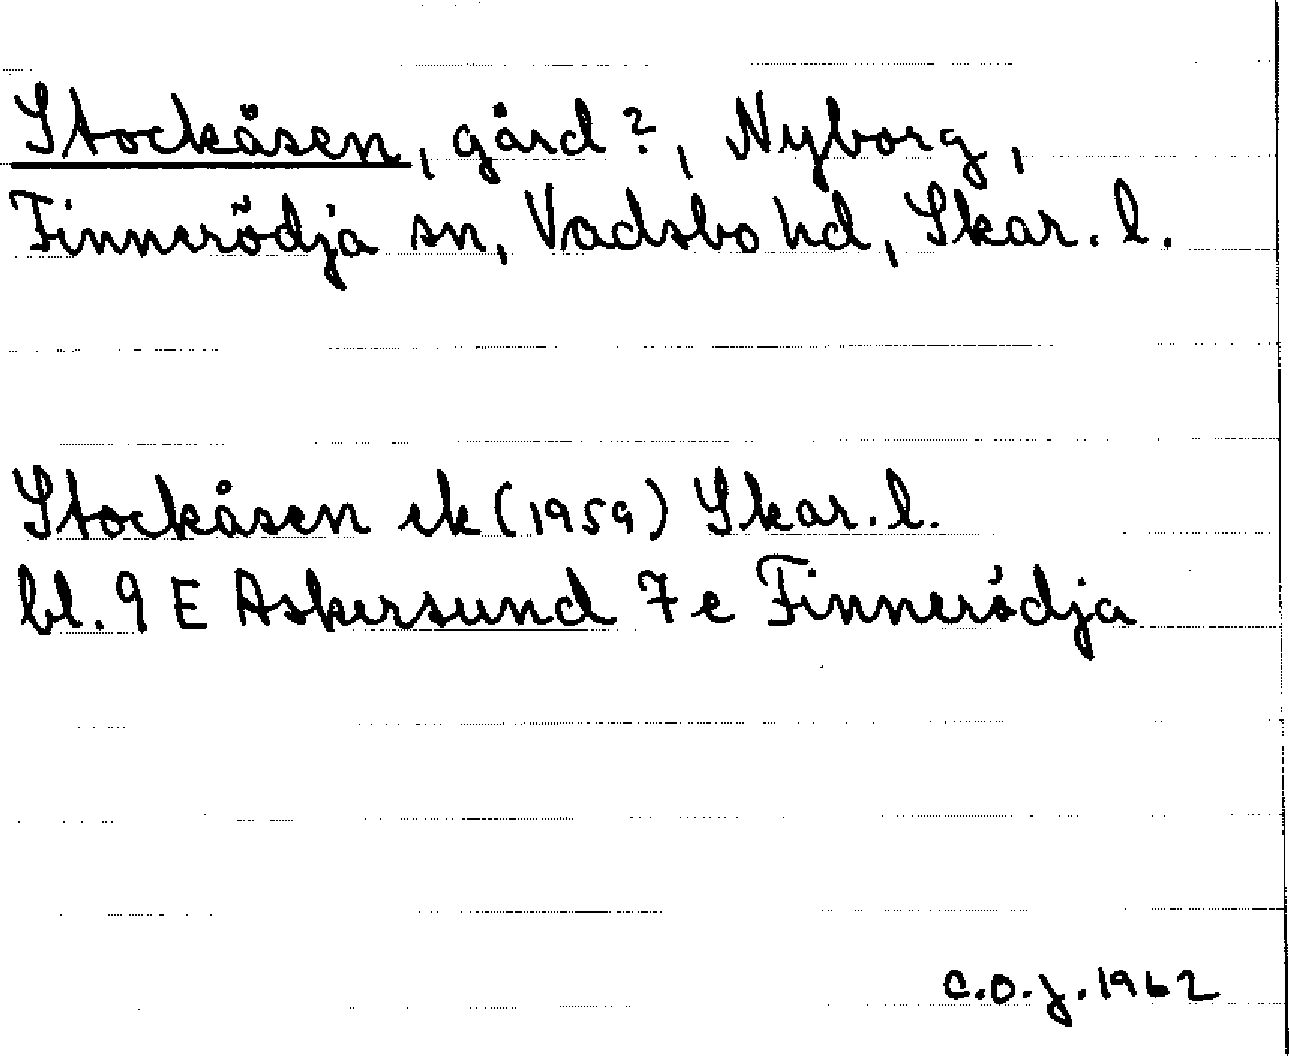 Stockåsen, gård?, Nyborg,
Finnerödja sn, Vadsbo hd, Skar. l.
Stockåsen ek (1959) Skar. l.
bl. 9 E Askersund 7e Finnerödja
C.O.J. 1962